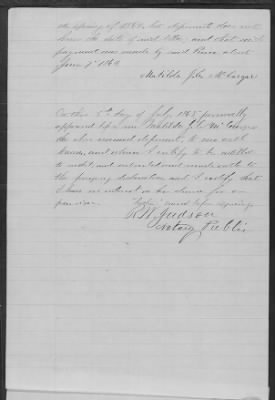 the spring of 1862, but deponent does not
know the date of said letter, and that said
payment was made by said Pierce about
June 1st 1862
Matilda Jile McCarger
On this 5th day of July 1865 personally
appeared before me Matilda J. McCarger
the above named deponent, to me well
known, and whom I certify to be entitled
to credit, and subscribed and made oath to
the foregoing declaration and I certify that
I have no interest in her claim for a
pension. erased before signing
R W Judson
Notary Public